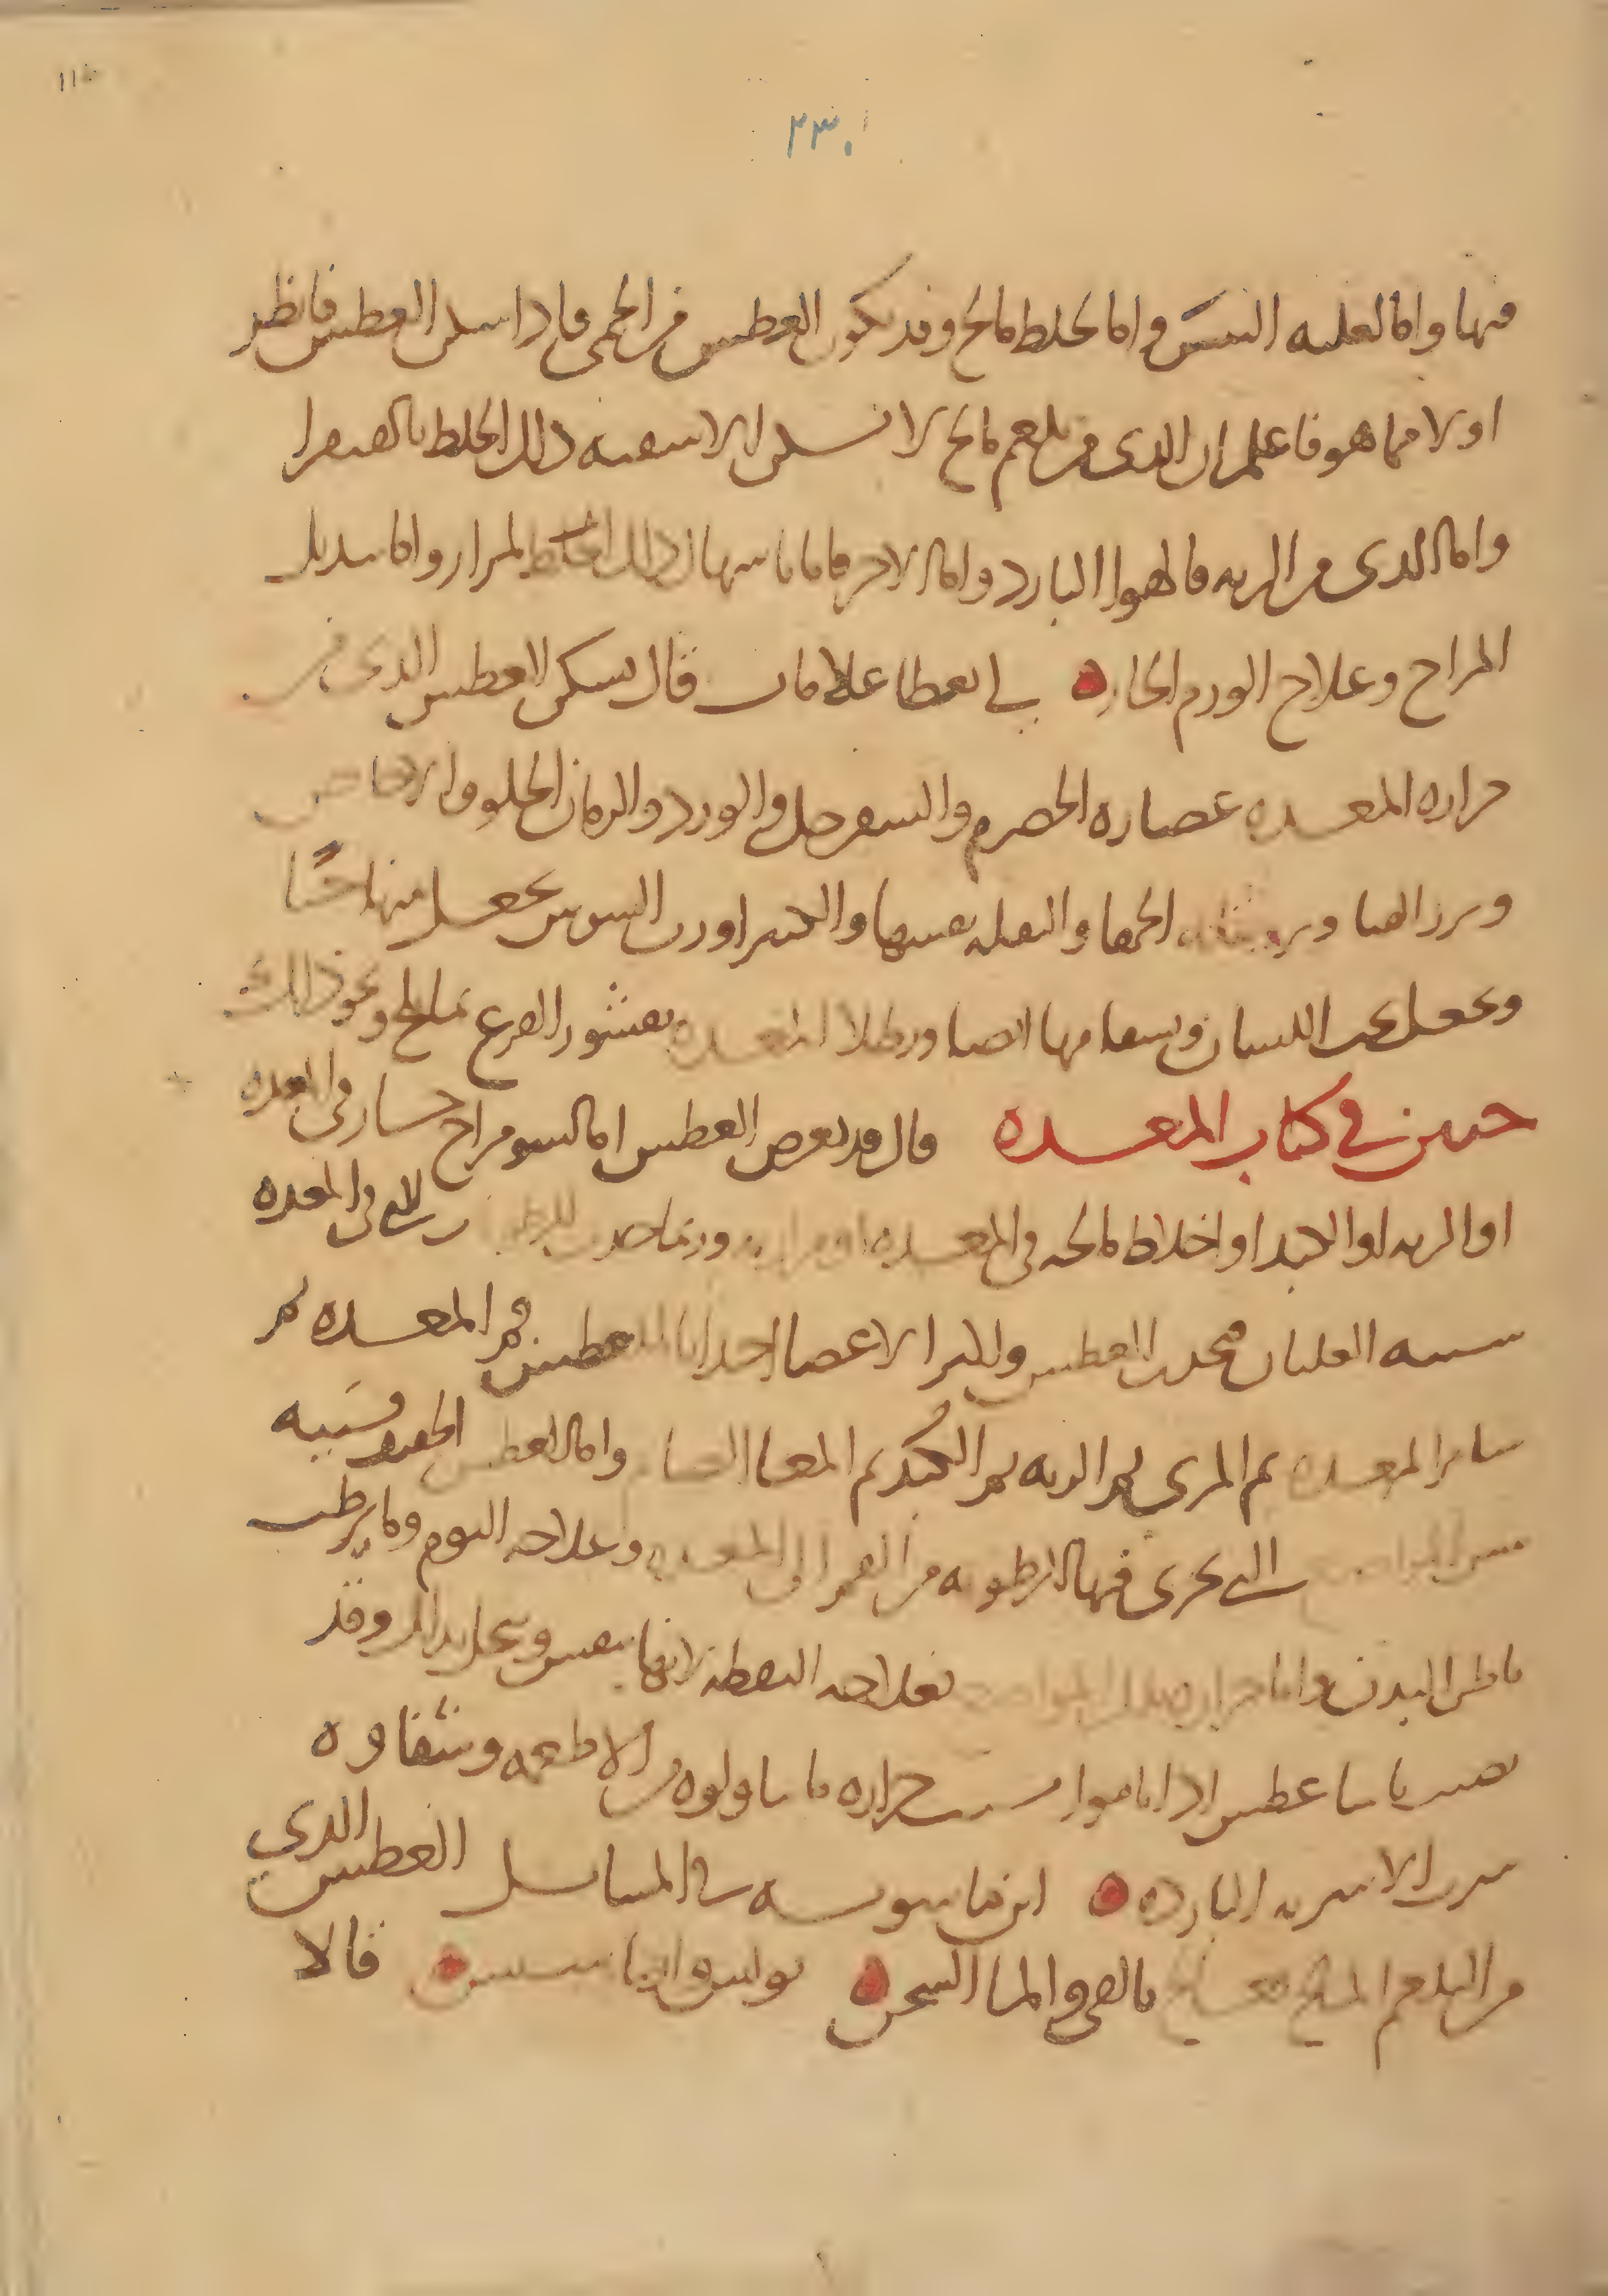 ٢٣٠
فيها واما لغلبه اليبس واما لخلط مالح وقد يكون العطش من الحمى فاذا اسكن العطش فانظر
اولا مما هو فاعلم ان الذى من بلغم مالح لا يسكن الا بنفضه ذلك الخلط بالقى مرا
واما الذى من الريه فالهوا البارد واما الاخر فاما باسهال ذلك الخلط المرار واما بتبديل
المزاج وعلاج الورم الحاره في اعطا علامات قال يسكن العطش الذى من
حراره المعده عصاره الحصرم والسفرجل والورد والرمان الحلو والحامض
وبزر القثا وبزر بقله الحمقا والبقله نفسها والكثيرا ورب السوس يجعل منها حبا
ويجعل تحت اللسان ويسقا منها ايضا ويطلا المعده بقشور القرع بما يلج ونحو ذلك
حنين في كتاب المعده قال قد يعرض العطش اما لسو مزاج حار فى المعده
او الريه او الكبد او اخلاط مالحه فى المعده او مراريه وربما حدث للرطوبه التى فى المعده
شبيه الغليان فيحدث العطش واكثر الاعضا احداثا للعطش فم المعده ثم
ساير المعده ثم المرى ثم الريه ثم الكبد ثم المعا الصايم واما العطش الخفيف فسببه
يبس المواضع التى تجرى فيها الرطوبه من الفم الى المعده وعلاجه النوم وما يرطب
باطن البدن واما حراره هذه المواضع فعلاجه اليقظه لانها تنفس وتحلل وقد
يصيب ناسا عطش اذا ناموا بسبب حراره ما تناولوه من الاطعمه وشفاوه
شرب الاشربه البارده ابن ماسويه في المسايل العطش الذي
من البلغم المالح يعالج بالقى والما السخن بولس ابتا يسكن قالا